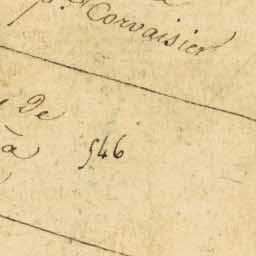 pr. Corvaisier
de
à 546